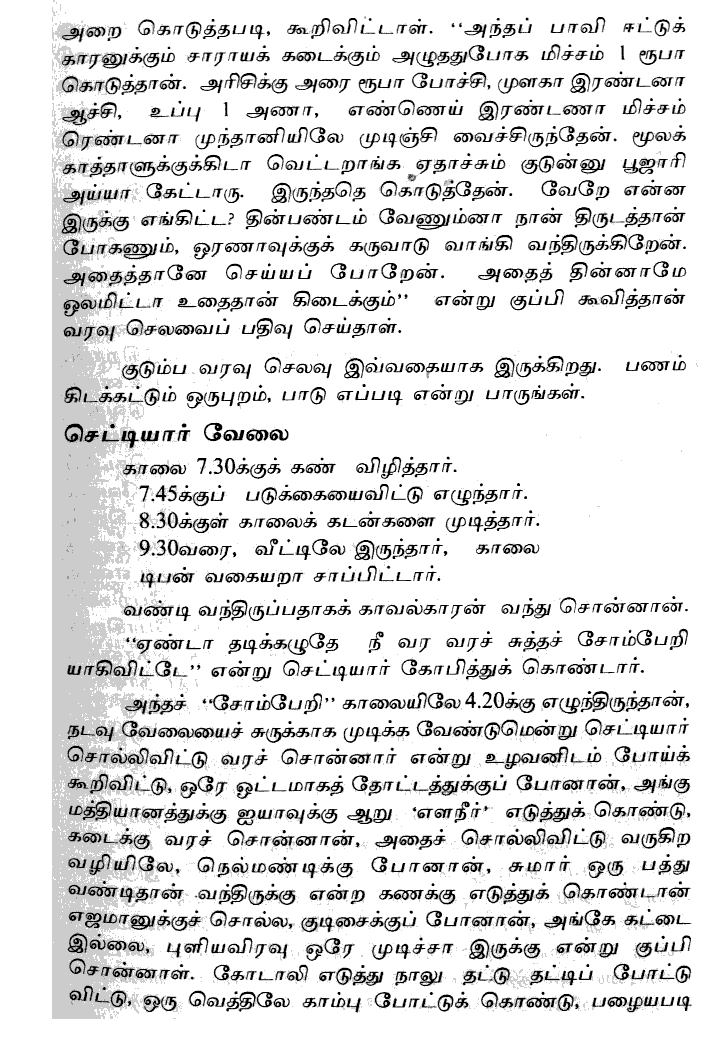 அறை கொடுத்தபடி, கூறிவிட்டாள். “அந்தப் பாவி ஈட்டுக்
காரனுக்கும் சாராயக் கடைக்கும் அழுததுபோக மிச்சம் 1 ரூபா
கொடுத்தான். அரிசிக்கு அரை ரூபா போச்சி, முளகா இரண்டனா
ஆச்சி, உப்பு 1 அணா, எண்ணெய் இரண்டணா மிச்சம்
ரெண்டனா முந்தானியிலே முடிஞ்சி வைச்சிருந்தேன். மூலக்
காத்தாளுக்குக்கிடா வெட்டறாங்க ஏதாச்சும் குடுன்னு பூஜாரி
அய்யா கேட்டாரு. இருந்ததெ கொடுத்தேன். வேறே என்ன
இருக்கு எங்கிட்ட? தின்பண்டம் வேணும்னா நான் திருடத்தான்
போகணும், ஒரணாவுக்குக் கருவாடு வாங்கி வந்திருக்கிறேன்.
அதைத்தானே செய்யப் போறேன். அதைத் தின்னாமே
ஒலமிட்டா உதைதான் கிடைக்கும்” என்று குப்பி கூவித்தான்
வரவு செலவைப் பதிவு செய்தாள்.
குடும்ப வரவு செலவு இவ்வகையாக இருக்கிறது. பணம்
கிடக்கட்டும் ஒருபுறம், பாடு எப்படி என்று பாருங்கள்.
செட்டியார் வேலை
காலை 7.30க்குக் கண் விழித்தார்.
7.45க்குப் படுக்கையைவிட்டு எழுந்தார்.
8.30க்குள் காலைக் கடன்களை முடித்தார்.
9.30வரை, வீட்டிலே இருந்தார், காலை
டிபன் வகையறா சாப்பிட்டார்.
வண்டி வந்திருப்பதாகக் காவல்காரன் வந்து சொன்னான்.
“ஏண்டா தடிக்கழுதே நீ வர வரச் சுத்தச் சோம்பேறி
யாகிவிட்டே” என்று செட்டியார் கோபித்துக் கொண்டார்.
அந்தச் “சோம்பேறி” காலையிலே 4.20க்கு எழுந்திருந்தான்,
நடவு வேலையைச் சுருக்காக முடிக்க வேண்டுமென்று செட்டியார்
சொல்லிவிட்டு வரச் சொன்னார் என்று உழவனிடம் போய்க்
கூறிவிட்டு, ஒரே ஓட்டமாகத் தோட்டத்துக்குப் போனான், அங்கு
மத்தியானத்துக்கு ஐயாவுக்கு ஆறு ‘எளநீர்’ எடுத்துக் கொண்டு,
கடைக்கு வரச் சொன்னான், அதைச் சொல்லிவிட்டு வருகிற
வழியிலே, நெல்மண்டிக்கு போனான், சுமார் ஒரு பத்து
வண்டிதான் வந்திருக்கு என்ற கணக்கு எடுத்துக் கொண்டான்
எஜமானுக்குச் சொல்ல, குடிசைக்குப் போனான், அங்கே கட்டை
இல்லை, புளியவிரவு ஒரே முடிச்சா இருக்கு என்று குப்பி
சொன்னாள். கோடாலி எடுத்து நாலு தட்டு தட்டிப் போட்டு
விட்டு, ஒரு வெத்திலே காம்பு போட்டுக் கொண்டு, பழையபடி